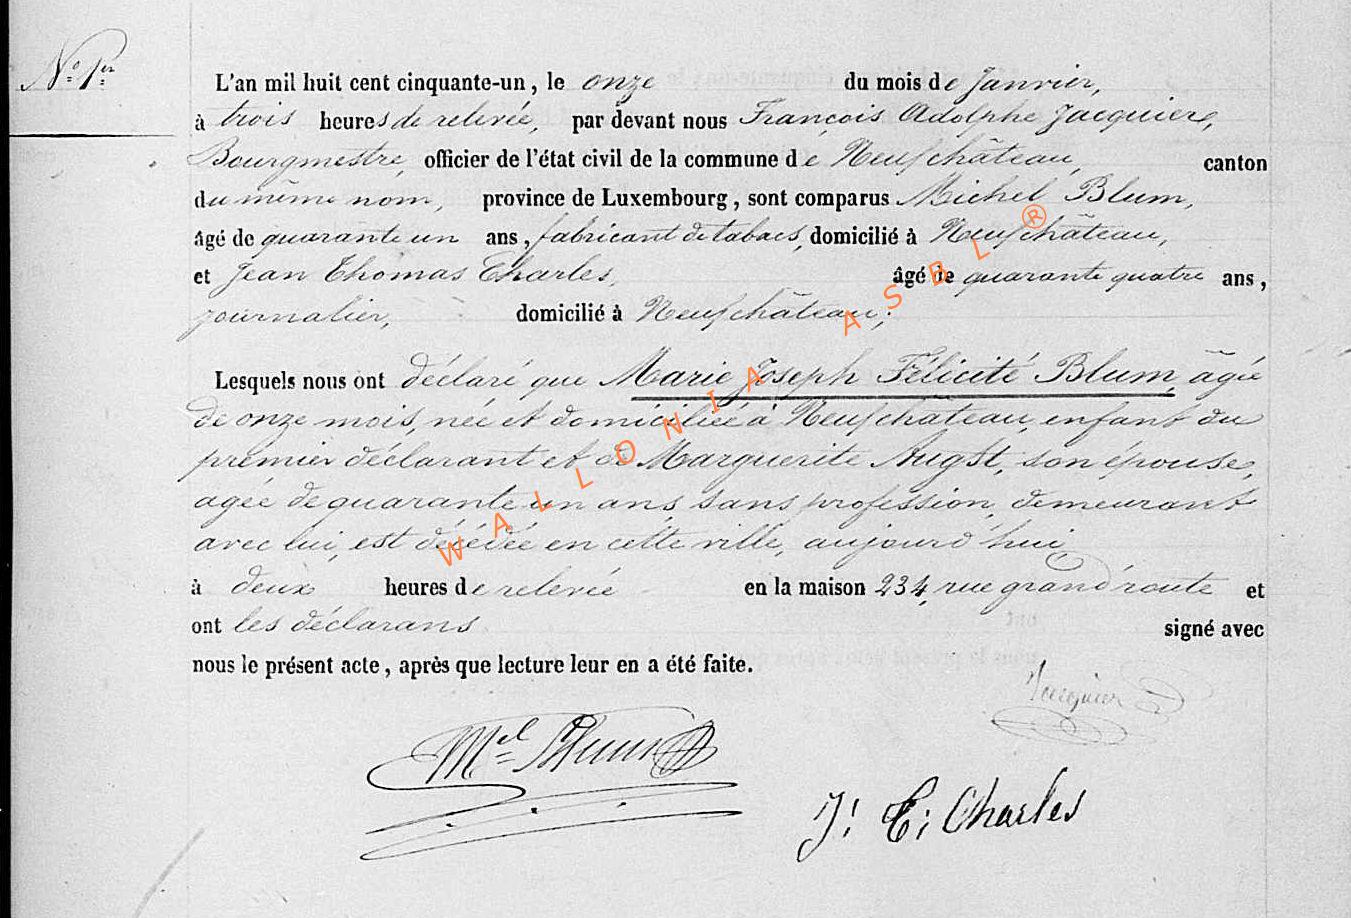 N° 1er
L'an mil huit cent cinquante-un, le onze du mois de Janvier,
à trois heures de relevée, par devant nous François Adolphe Jacquier,
Bourgmestre, officier de l'état civil de la commune de Neufchâteau, canton
du même nom, province de Luxembourg, sont comparus Michel Blum,
âgé de quarante un ans, fabricant de tabacs, domicilié à Neufchâteau,
et Jean Thomas Charles, âgé de quarante quatre ans,
journalier, domicilié à Neufchâteau;
Lesquels nous ont déclaré que Marie Joseph Félicité Blum, âgée
de onze mois, née et domiciliée à Neufchâteau, enfant du
premier déclarant et de Marguerite Augst, son épouse,
agée de quarante un ans, sans profession, demeurant
avec lui, est décédée en cette ville, aujourd'hui
à deux heures de relevée en la maison 234, rue grand'route et
ont les déclarans signé avec
nous le présent acte, après que lecture leur en a été faite.
Jacquier
Mel Blum
J: T: Charles
WALLONIA ASBL ®